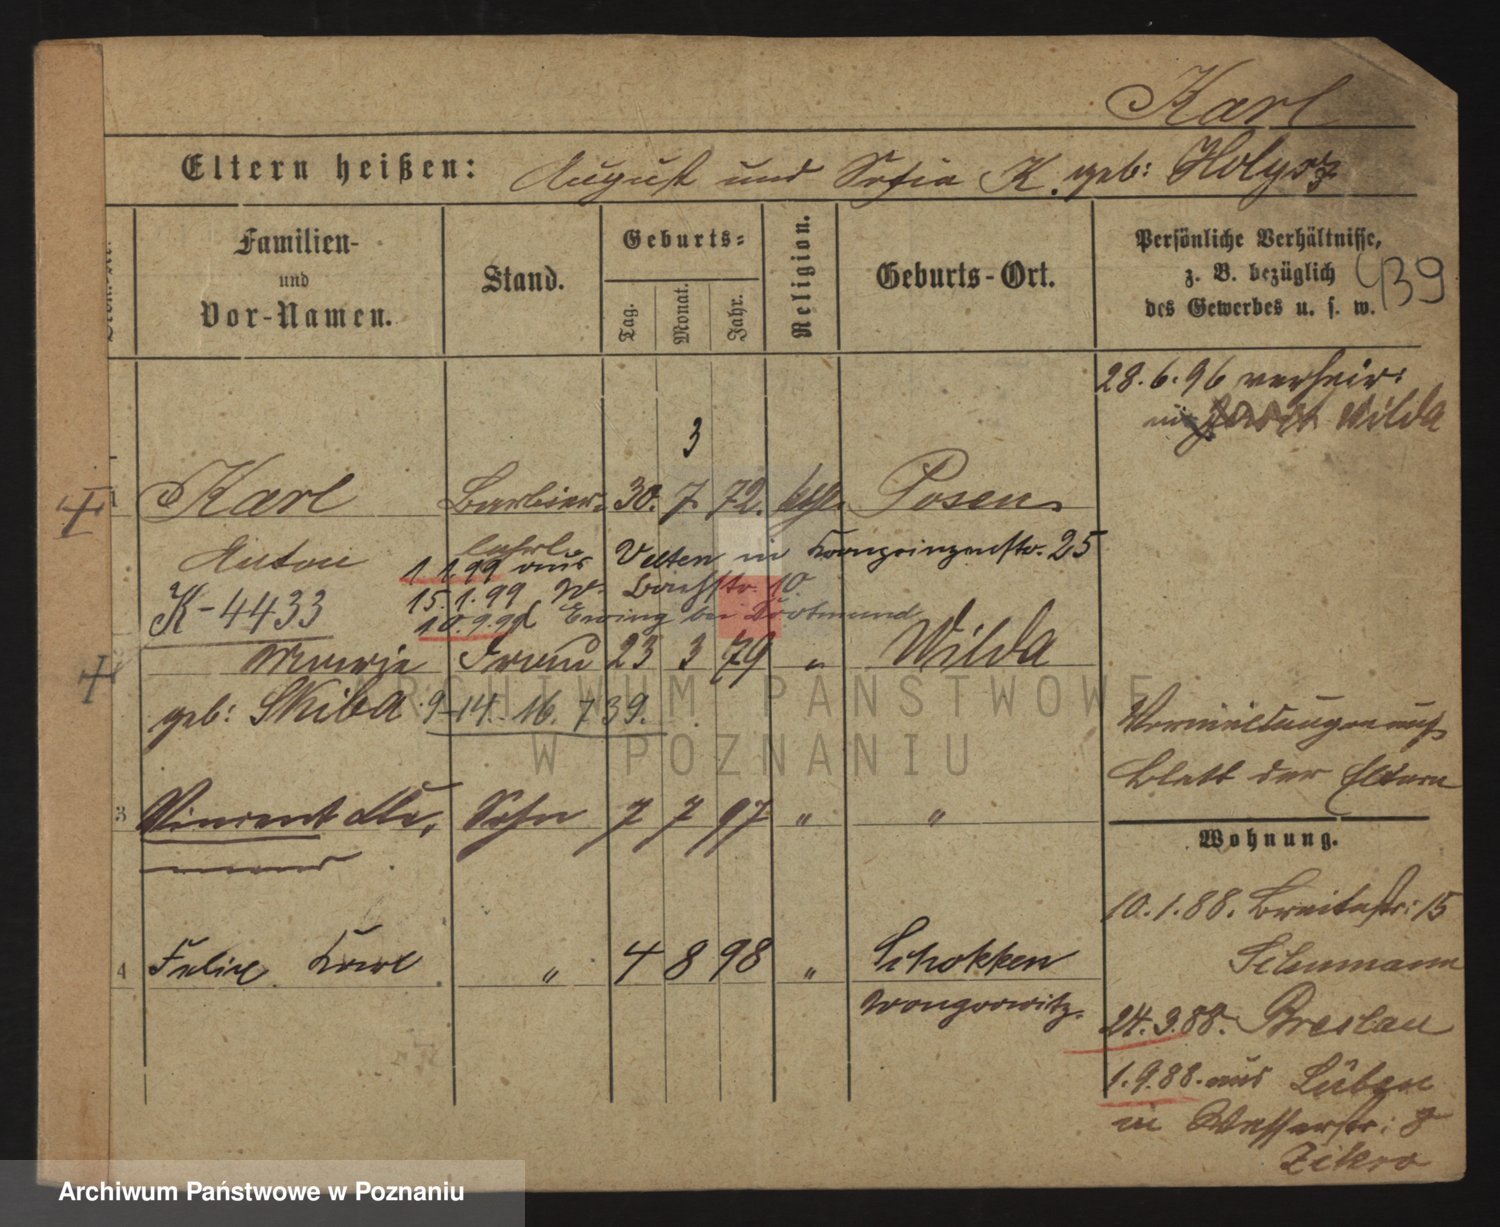 Karl
Eltern heißen: August und Sofia K. geb: Holysz
Familien-
und
Vor-Namen.
Stand.
Geburts-
Tag.
Monat.
Jahr.
Religion.
Geburts-Ort.
Persönliche Verhältnisse,
z. B. bezüglich
des Gewerbes u. s. w.
439
28.6.96 verheir:
in Wilda
3
1 Karl Barbier 30. 7. 72. kath. Posen
Anton
1.1.99 aus Velten in Kronprinzenstr. 25
15.1.99 Bachstr. 10.
K-4433
10.9.99 Eving bei Dortmund
Marie Frau 23 3 79 " Wilda
geb: Skiba 9-14. 16. 7 39.
Vermeldungen auf
Blatt der Eltern
3 Vincent Sohn 7 7 97 " "
Wohnung.
10.1.88. Breitestr: 15
Schumann
4 Felix Karl " 4 8 98 " Schokken
Wongrowitz.
24.3.88. Breslau
1.9.88. aus Lüben
in Wasserstr: 8
Zikro
ARCHIWUM PAŃSTWOWE
W POZNANIU
Archiwum Państwowe w Poznaniu